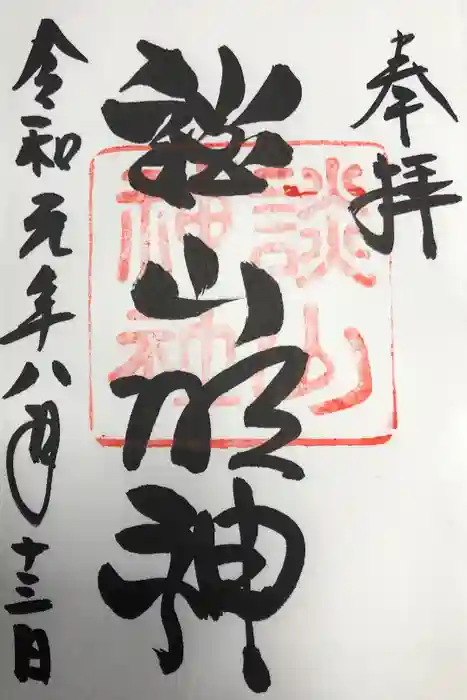 奉拝
談山明神
談山
神社
令和元年八月十三日